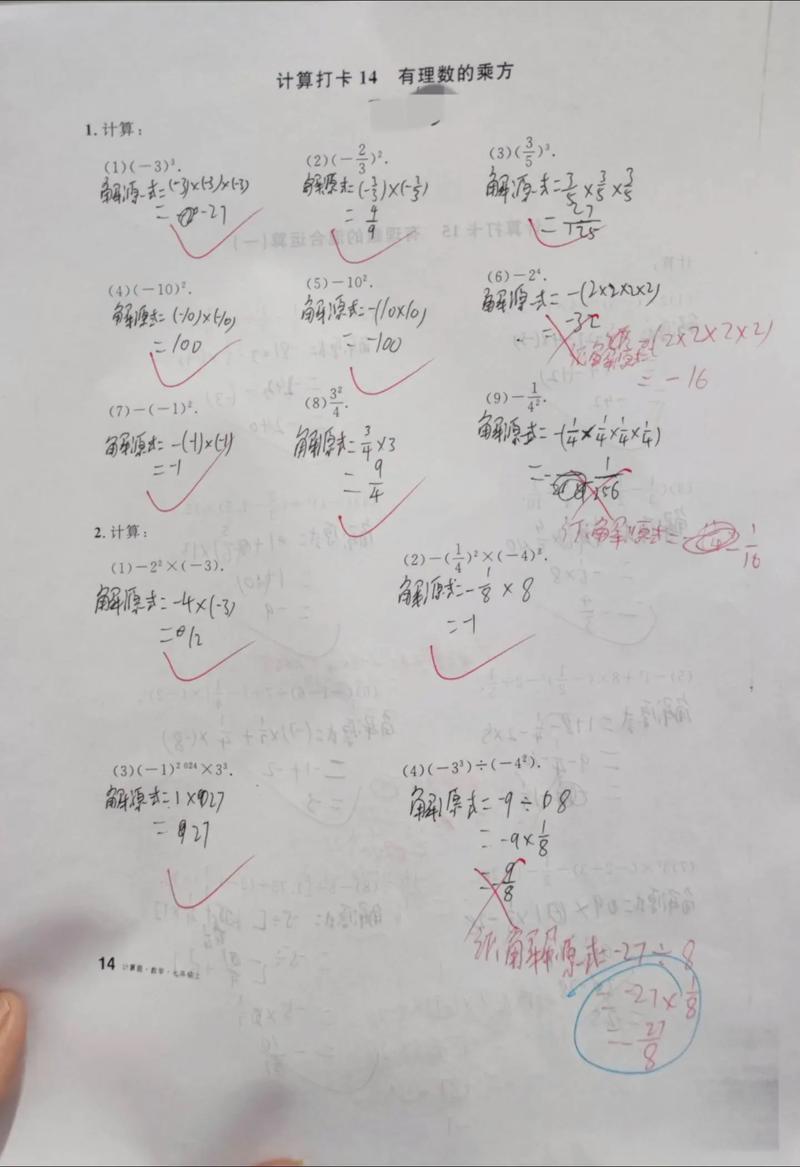 计算打卡14 有理数的乘方
1.计算:
(1)(-3)³.
解:原式=(-3)×(-3)×(-3)
=-27
(2)(-2/3)².
解:原式=(-2/3)×(-2/3)
=4/9
(3)(3/5)³.
解:原式=3/5×3/5×3/5
=27/125
(4)(-10)².
解:原式=(-10)×(-10)
=100
(5)-10².
解:原式=-(10×10)
=-100
(6)-2⁴.
解:原式=-(2×2×2×2)
=-32
订:解:原式=-(2×2×2×2)
=-16
(7)-(-1)².
解:原式=-(-1)×(-1)
=-1
(8)3²/4.
解:原式=3/4×3
=9/4
(9)-1/4².
解:原式=-(1/4×1/4×1/4×1/4)
=-1/256
订:解:原式=-1/16
2.计算:
(1)-2²×(-3).
解:原式=-4×(-3)
=12
(2)-(1/4)²×(-4)².
解:原式=-1/8×8
=-1
(3)(-1)²⁰²⁴×3³.
解:原式=1×27
=27
(4)(-3³)÷(-4²).
解:原式=-9÷8
=-9×1/8
=-9/8
订:解:原式=-27÷8
=-27×1/8
=-27/8
14 计算题·数学·七年级上